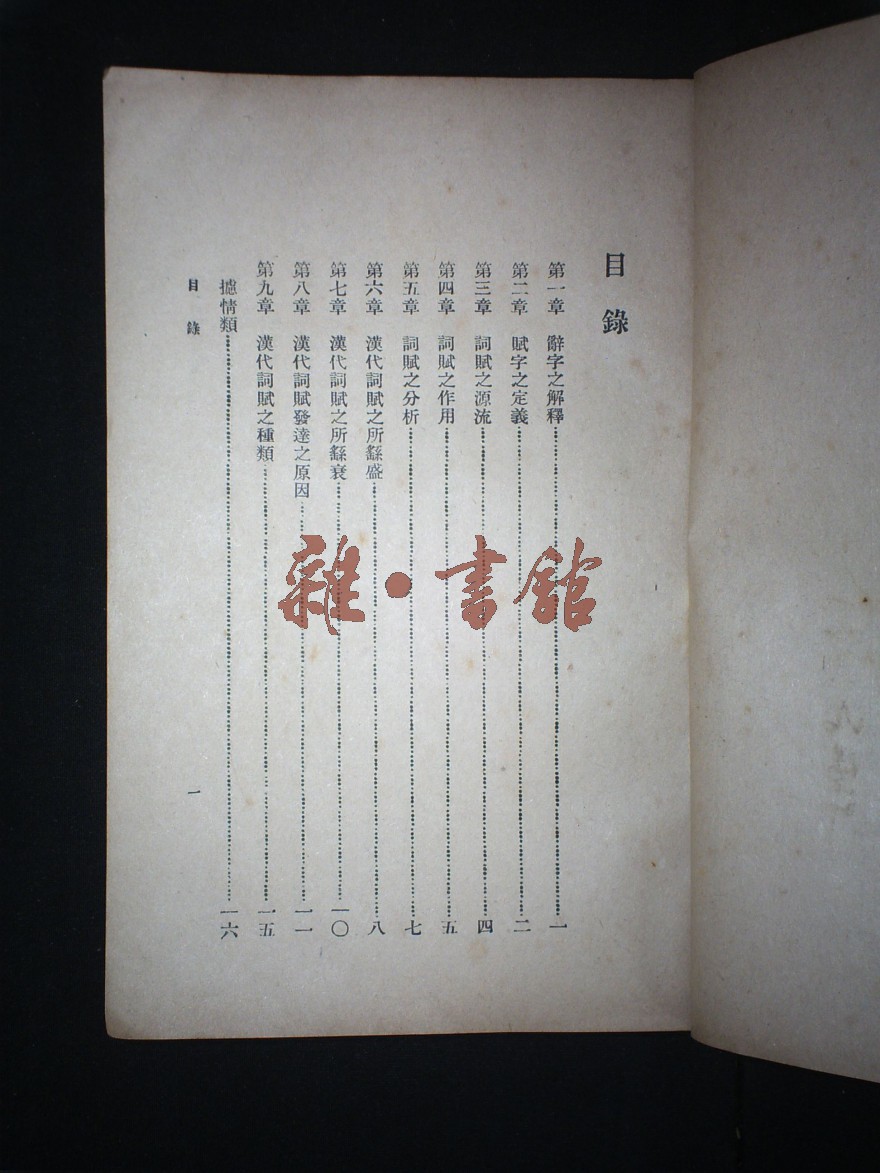 目錄
第一章 辭字之解釋……一
第二章 賦字之定義……二
第三章 詞賦之源流……四
第四章 詞賦之作用……五
第五章 詞賦之分析……七
第六章 漢代詞賦之所繇盛……八
第七章 漢代詞賦之所繇衰……一〇
第八章 漢代詞賦發達之原因……一一
第九章 漢代詞賦之種類……一五
攄情類……一六
目錄
一
雜•書館